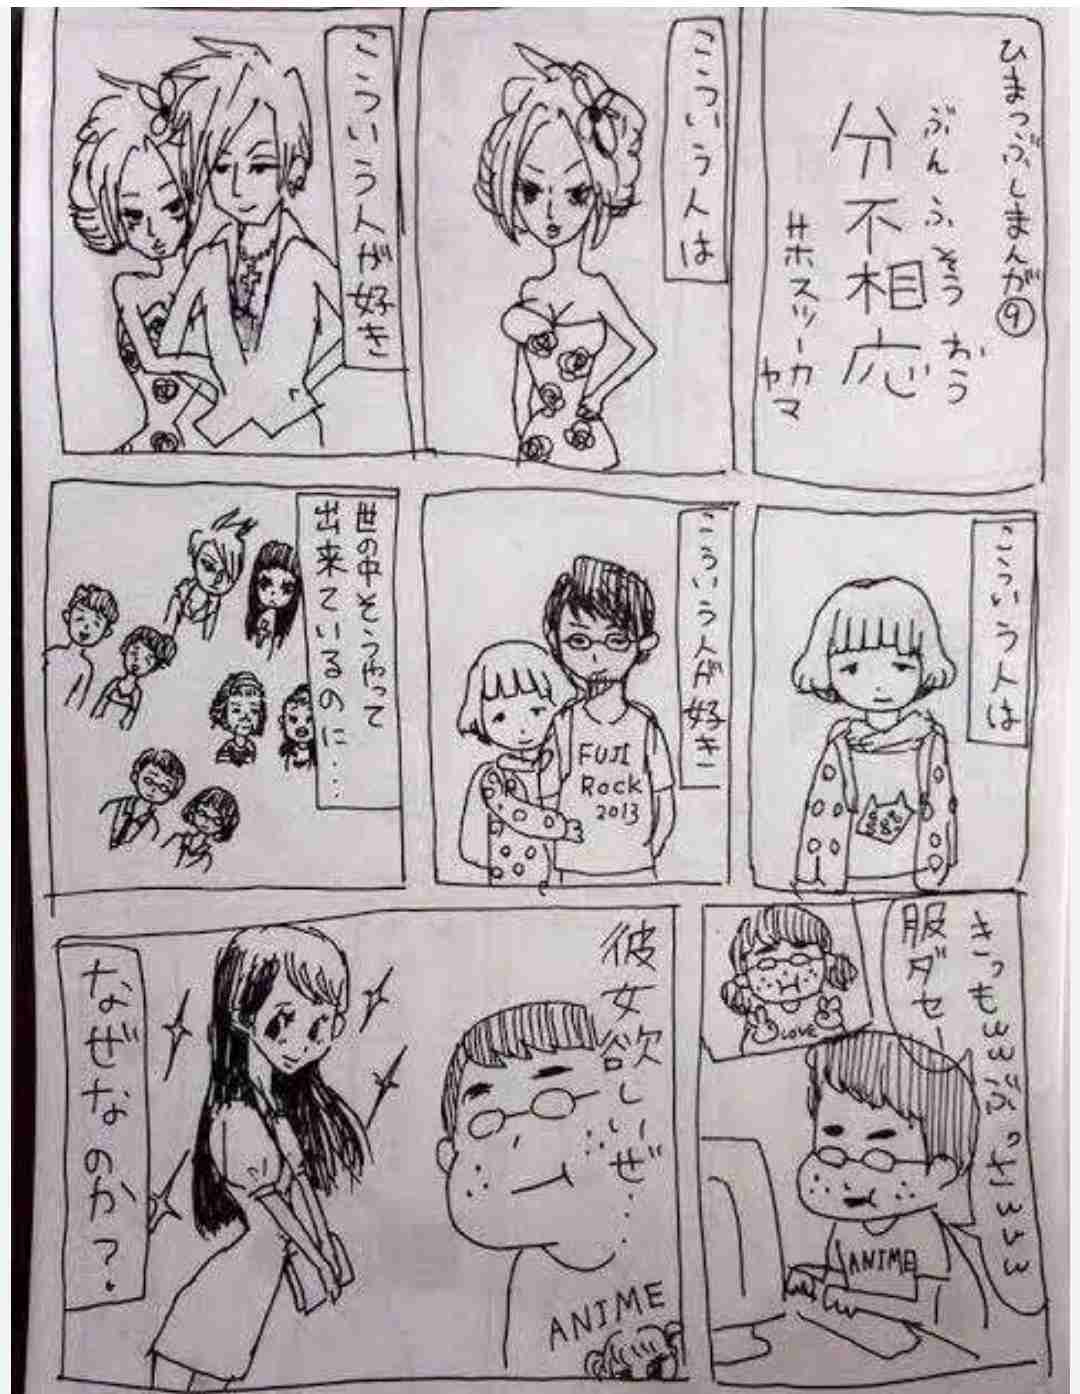 ひまつぶしまんが⑨
ぶんふそうおう
分不相応
サホスツーカ
ヤマ
こういう人は
こういう人が好き
こういう人は
こういう人が好き
FUJI
Rock
2013
世の中そうやって
出来ているのに・・・
きっもwwぶっさwww
服ダセー
LOVE
ANIME
彼女欲しいぜ・・・
ANIME
なぜなのか?